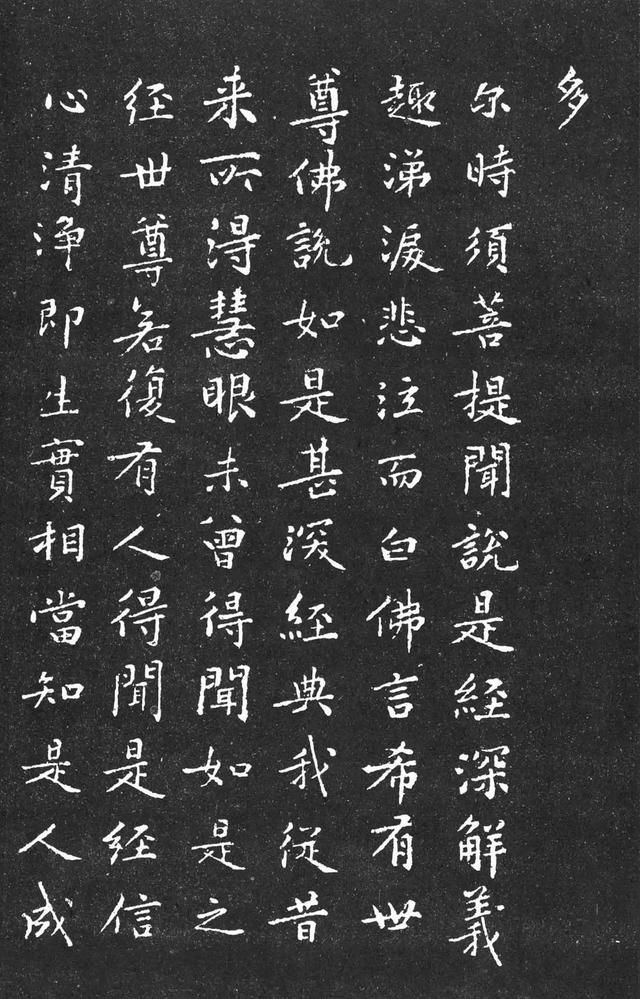 多
尒時須菩提聞說是經深解義
趣涕淚悲泣而白佛言希有世
尊佛說如是甚深經典我從昔
来所得慧眼未曾得聞如是之
経世尊若復有人得聞是経信
心清淨即生實相當知是人成